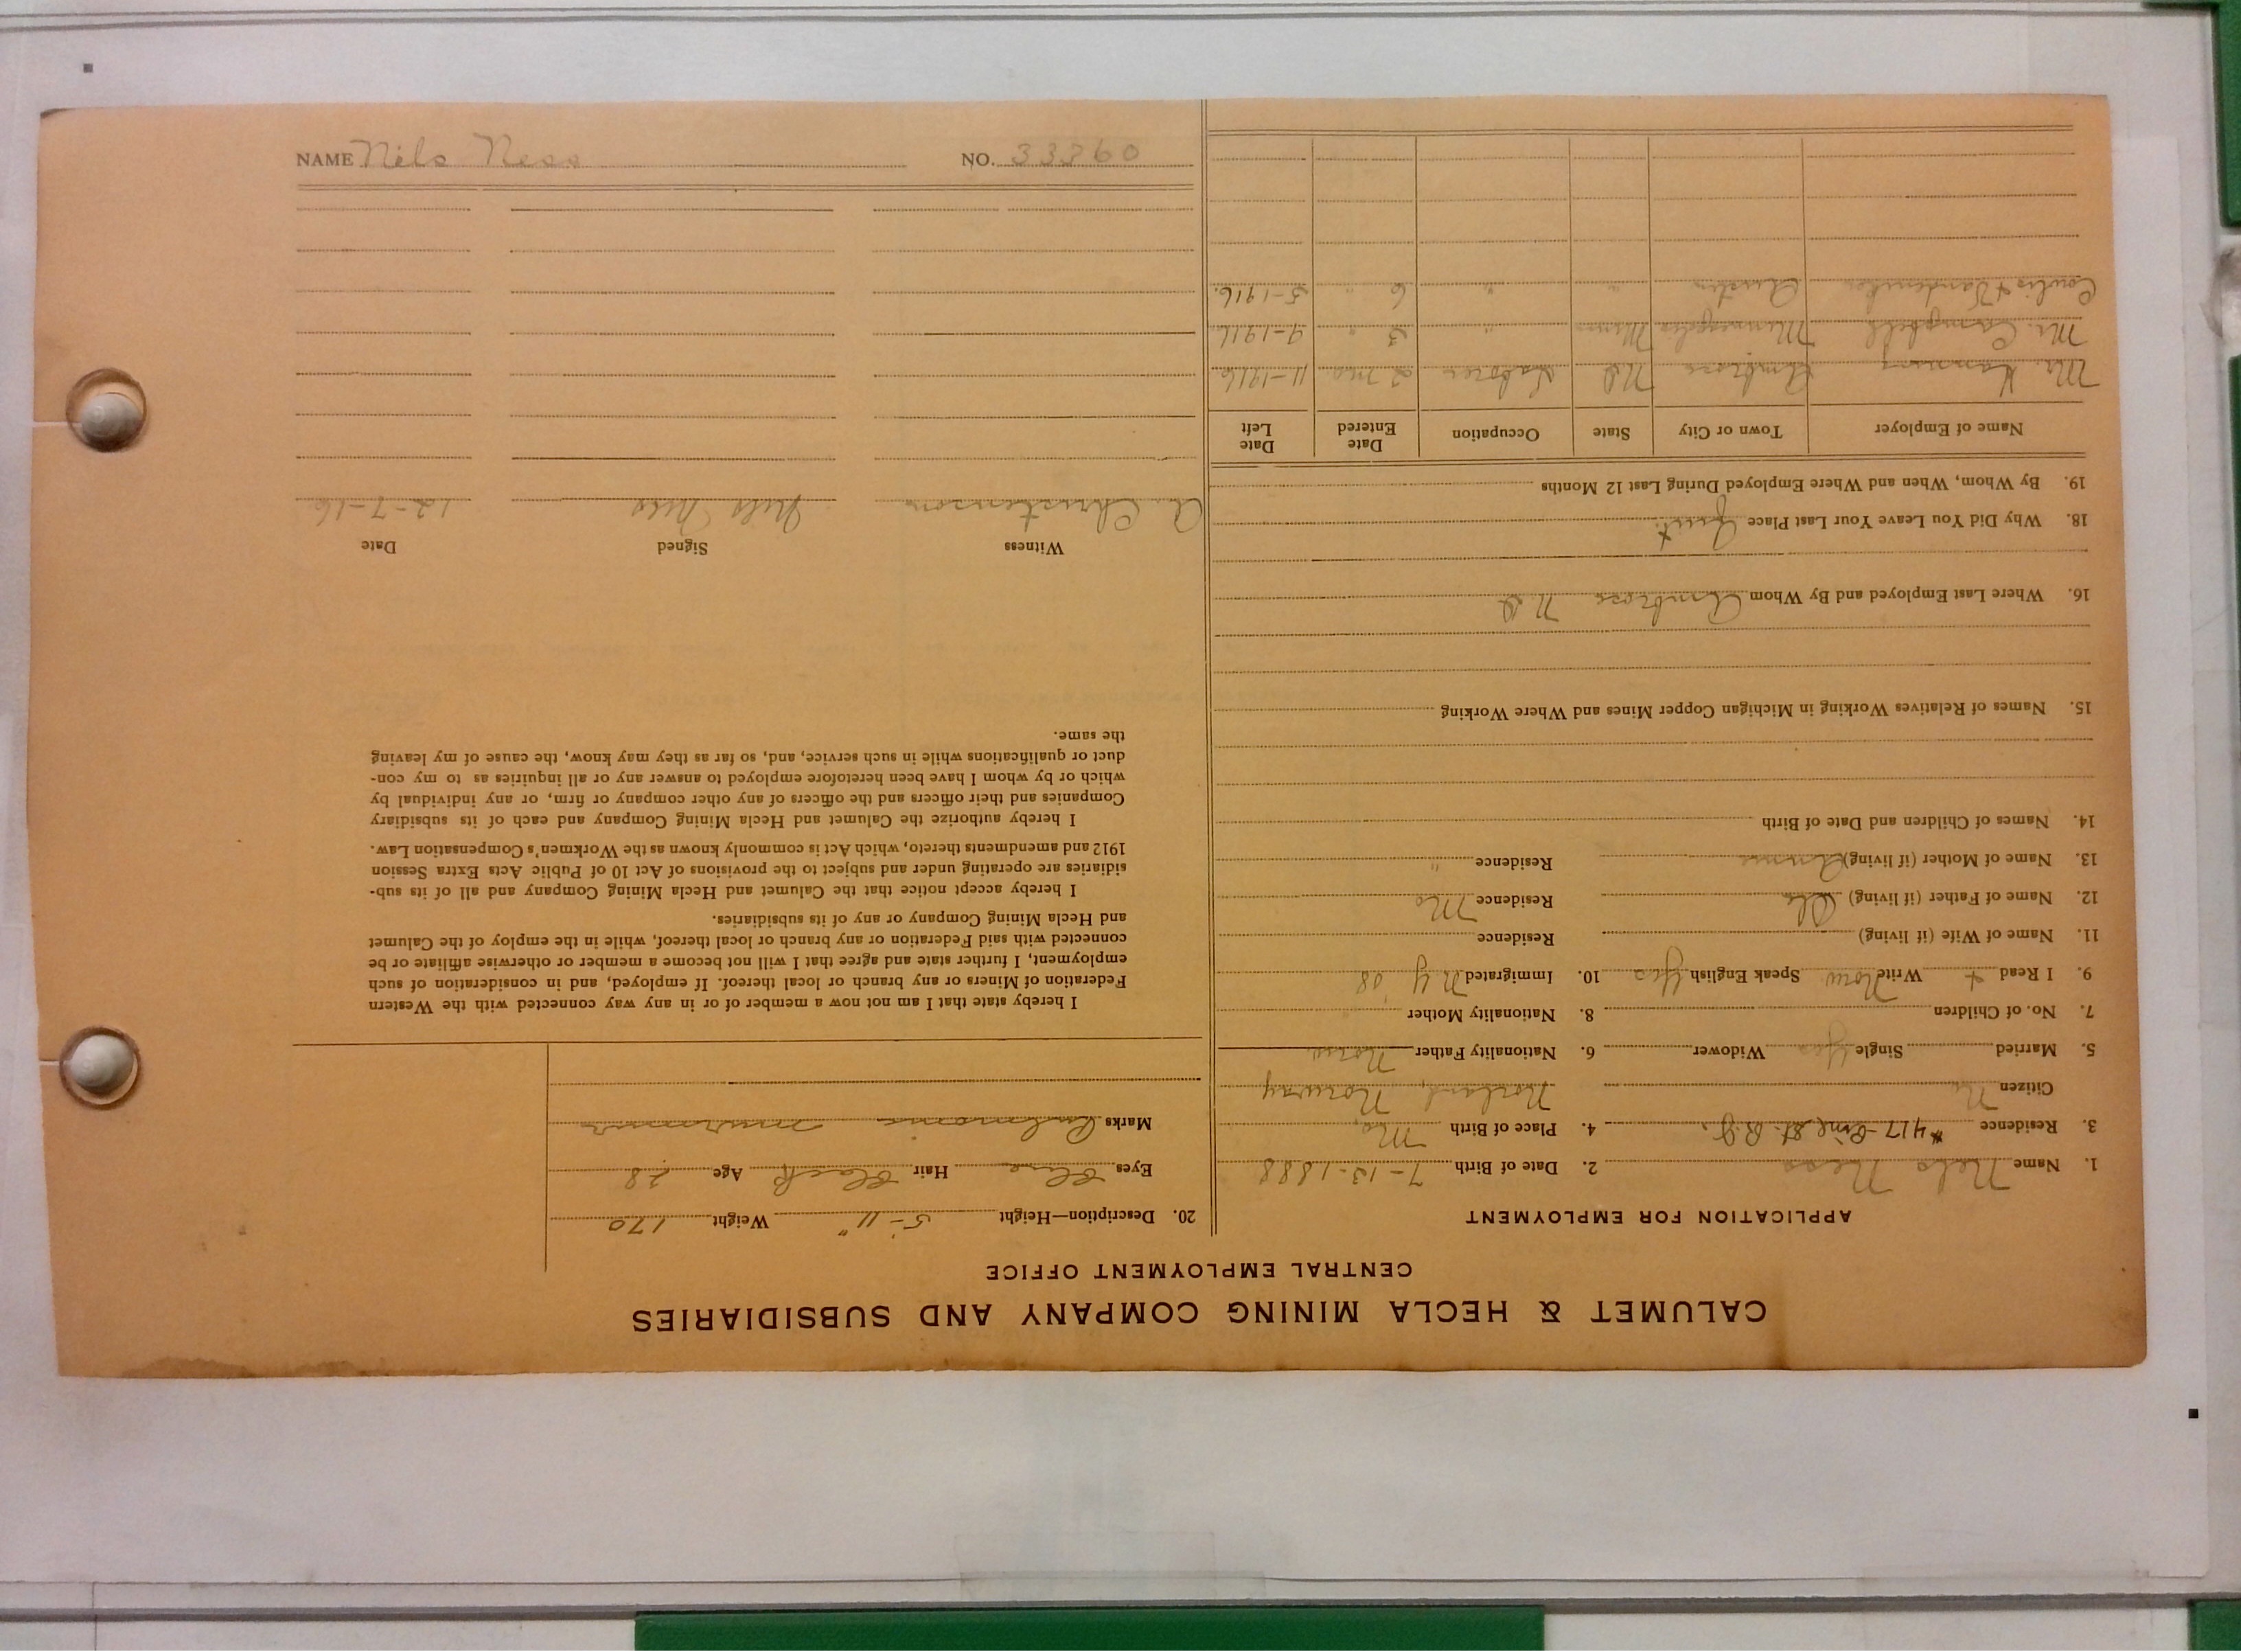 NAME Nels Ness NO. 33360
CALUMET & HECLA MINING COMPANY AND SUBSIDIARIES
CENTRAL EMPLOYMENT OFFICE
APPLICATION FOR EMPLOYMENT
1. Name Nels Ness 2. Date of Birth 7-13-1888
3. Residence #417 Pine St. R.J. 4. Place of Birth Mo,
Citizen No Norland, Norway
5. Married Single Yes Widower 6. Nationality Father Norw
7. No. of Children 8. Nationality Mother
9. I Read + Write Norw Speak English Yes 10. Immigrated N Y '08
11. Name of Wife (if living) Residence
12. Name of Father (if living) Ole Residence Mo
13. Name of Mother (if living) Anna Residence "
14. Names of Children and Date of Birth
15. Names of Relatives Working in Michigan Copper Mines and Where Working
16. Where Last Employed and By Whom Ambrose N D
18. Why Did You Leave Your Last Place Quit
19. By Whom, When and Where Employed During Last 12 Months
Name of Employer Town or City State Occupation Date Entered Date Left
Mr. Ambrose N D Laborer 2 mo 11-1916
Mr. Campbell Minneapolis Minn " 3 " 9-1916
Austin " " 6 " 5-1916.
20. Description—Height 5'-11" Weight 170
Eyes Blue Hair Black Age 28
Marks Pulmonic murmur
I hereby state that I am not now a member of or in any way connected with the Western
Federation of Miners or any branch or local thereof. If employed, and in consideration of such
employment, I further state and agree that I will not become a member or otherwise affiliate or be
connected with said Federation or any branch or local thereof, while in the employ of the Calumet
and Hecla Mining Company or any of its subsidiaries.
I hereby accept notice that the Calumet and Hecla Mining Company and all of its sub-
sidiaries are operating under and subject to the provisions of Act 10 of Public Acts Extra Session
1912 and amendments thereto, which Act is commonly known as the Workmen's Compensation Law.
I hereby authorize the Calumet and Hecla Mining Company and each of its subsidiary
Companies and their officers and the officers of any other company or firm, or any individual by
which or by whom I have been heretofore employed to answer any or all inquiries as to my con-
duct or qualifications while in such service, and, so far as they may know, the cause of my leaving
the same.
Witness Signed Date
A. Christenson Nels Ness 12-7-16